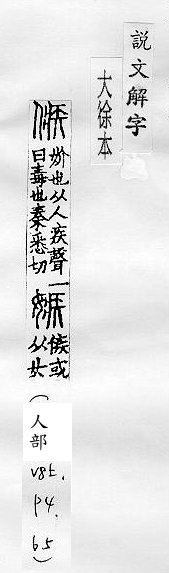 說文解字
大徐本
㑵 妎也从人疾聲一
曰毒也秦悉切
嫉 㑵或
从女
(人部
v8t.
p4.
b5)